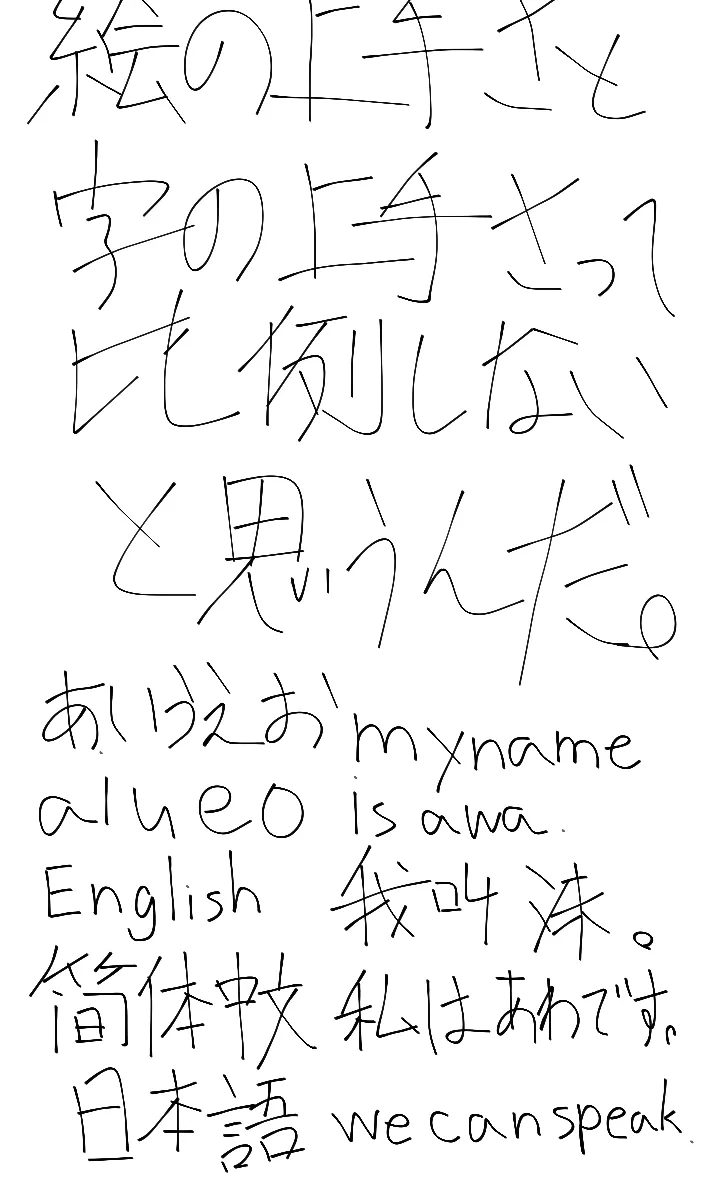 絵の上手さと
字の上手さって
比例しない
と思うんだ。
あいうえお my name
a i u e o is awa.
English 我叫沫。
简体中文 私はあわです。
日本語 we can speak.